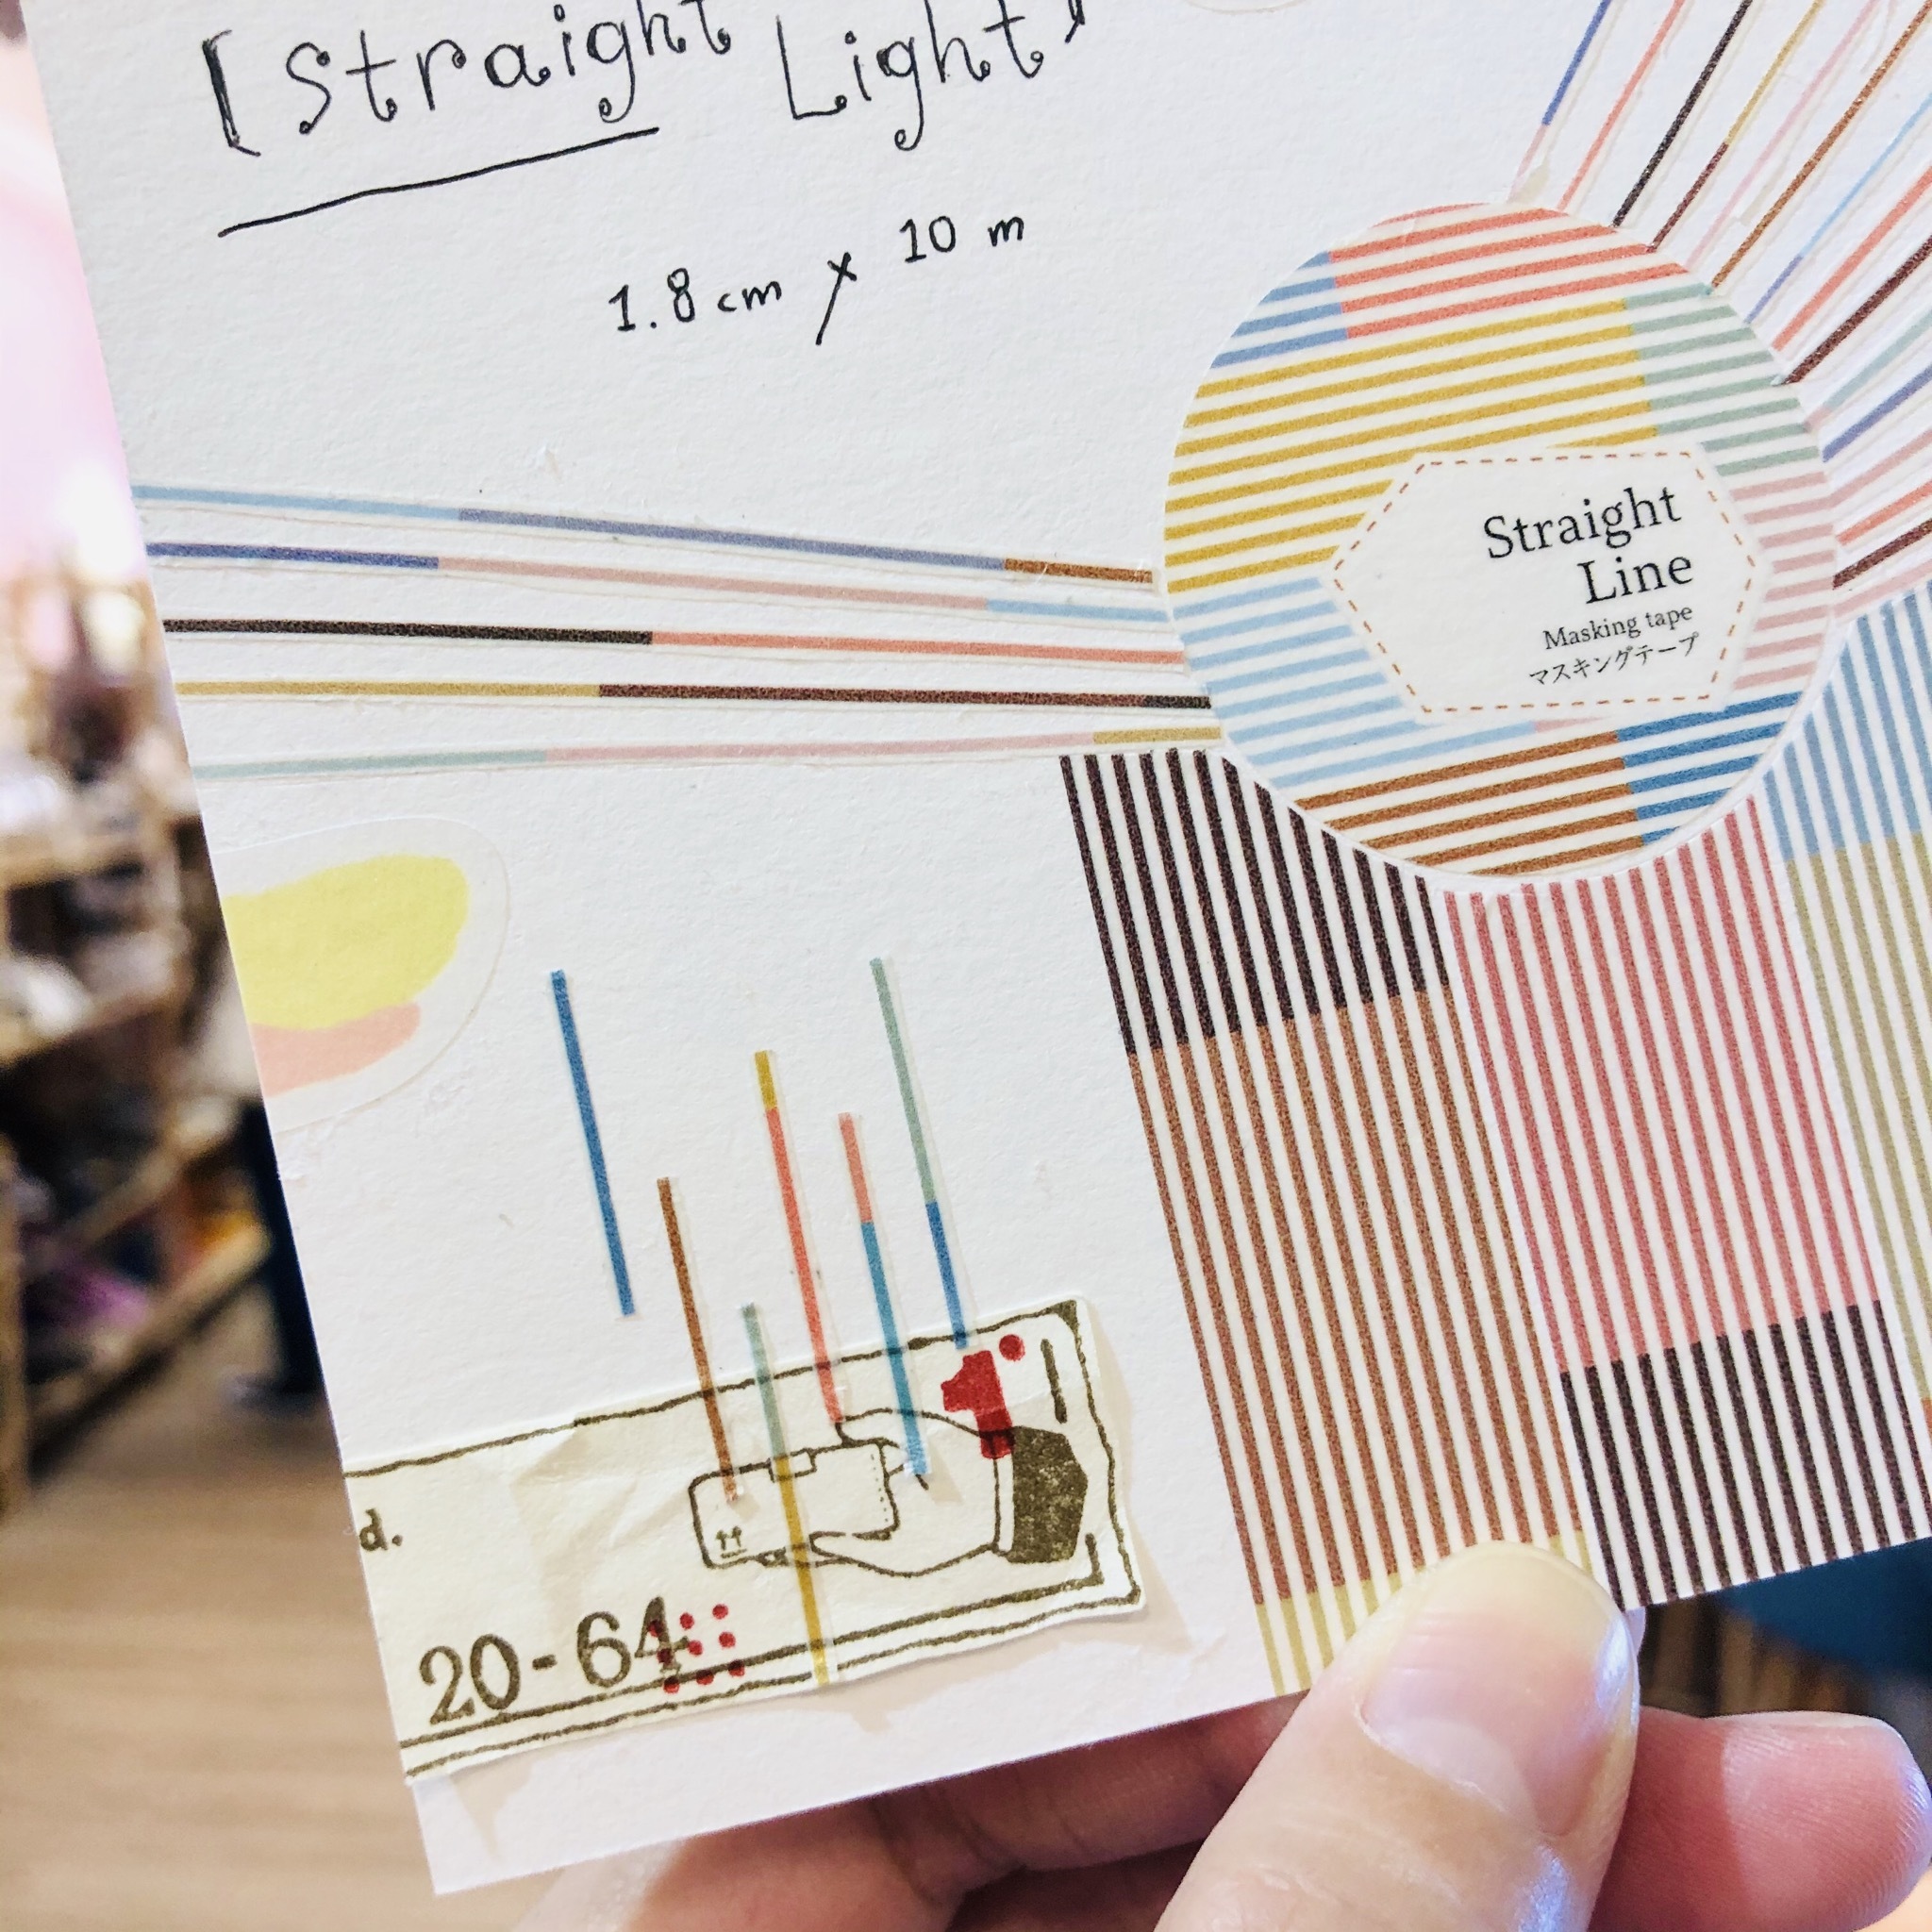 [Straight Light]
1.8 cm x 10 m
Straight
Line
Masking tape
マスキングテープ
1
d.
20-64